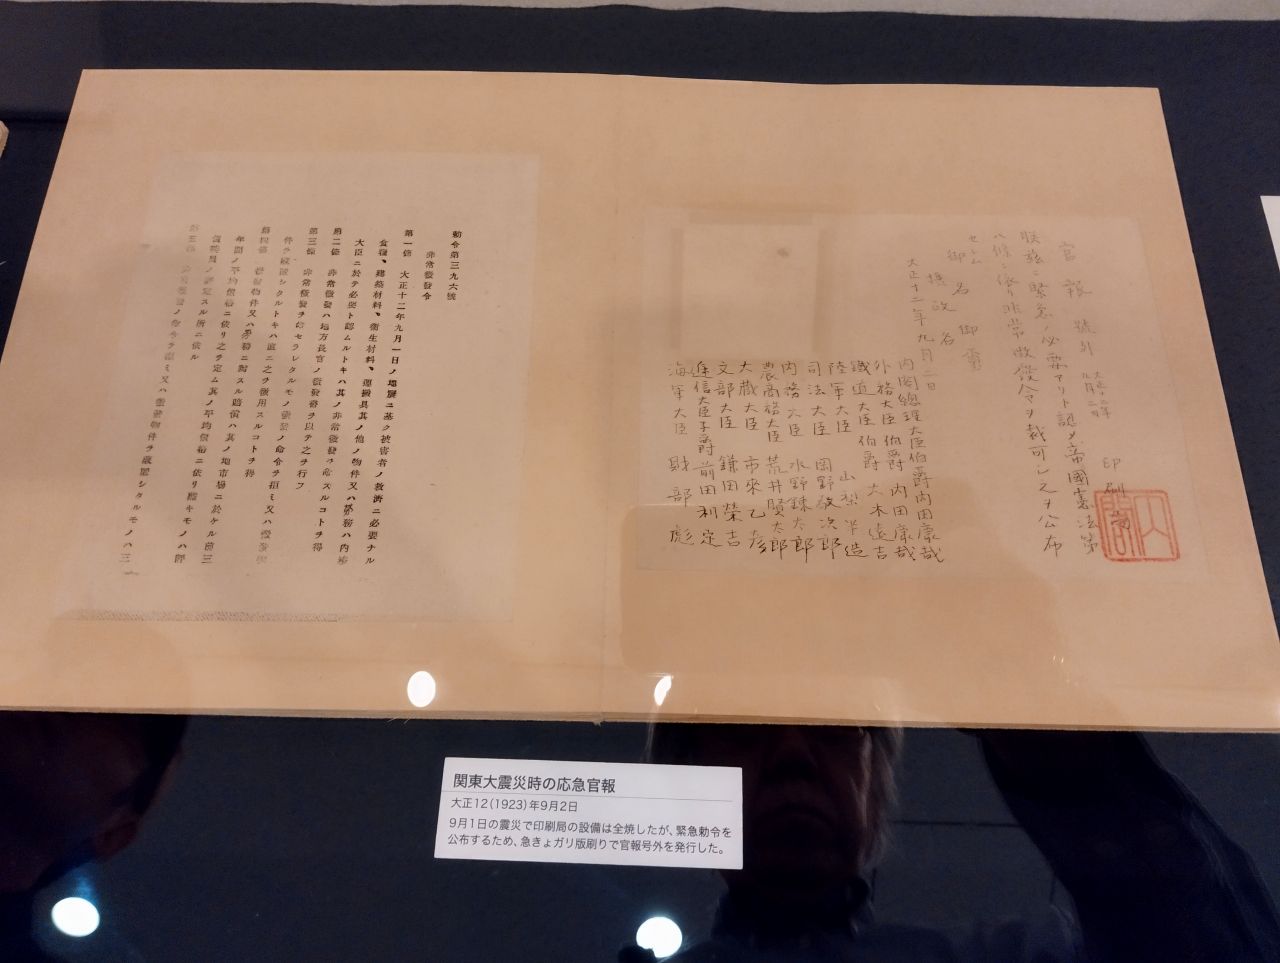 官報 號外 大正十二年九月二日 印刷局
朕玆ニ緊急ノ必要アリト認メ帝國憲法第
八條ニ依リ非常徴發令ヲ裁可シ之ヲ公布
セシム
御名 御璽
攝政名
大正十二年九月二日
内閣總理大臣伯爵内田康哉
外務大臣 伯爵 内田康哉
鐵道大臣 伯爵 大木遠吉
陸軍大臣 山梨半造
司法大臣 岡野敬次郎
内務大臣 水野錬太郎
農商務大臣 荒井賢太郎
大藏大臣 市來乙彦
文部大臣 鎌田榮吉
遞信大臣子爵 前田利定
海軍大臣 財部彪
勅令第三九六號
非常徴發令
第一條 大正十二年九月一日ノ地震ニ基ク被害者ノ救濟ニ必要ナル
食糧、建築材料、衞生材料、運搬具其ノ他ノ物件又ハ勞務ハ内務
大臣ニ於テ必要ト認ムルトキハ其ノ非常徴發ヲ命スルコトヲ得
第二條 非常徴發ハ地方長官ノ徴發書ヲ以テ之ヲ行フ
第三條 非常徴發ヲ命セラレタルモノ徴發ノ命令ヲ拒ミ又ハ徴發物
件ヲ藏匿シタルトキハ直ニ之ヲ徴用スルコトヲ得
第四條 徴發物件又ハ勞務ニ對スル賠償ハ其ノ地市場ニ於ケル前三
年間ノ平均價格ニ依リ之ヲ定ム其ノ平均價格ニ依リ難キモノハ評
價委員ノ評定スル所ニ依ル
第五條 非常徴發ノ命令ヲ拒ミ又ハ徴發物件ヲ藏匿シタルモノハ三
関東大震災時の応急官報
大正12(1923)年9月2日
9月1日の震災で印刷局の設備は全焼したが、緊急勅令を
公布するため、急きょガリ版刷りで官報号外を発行した。